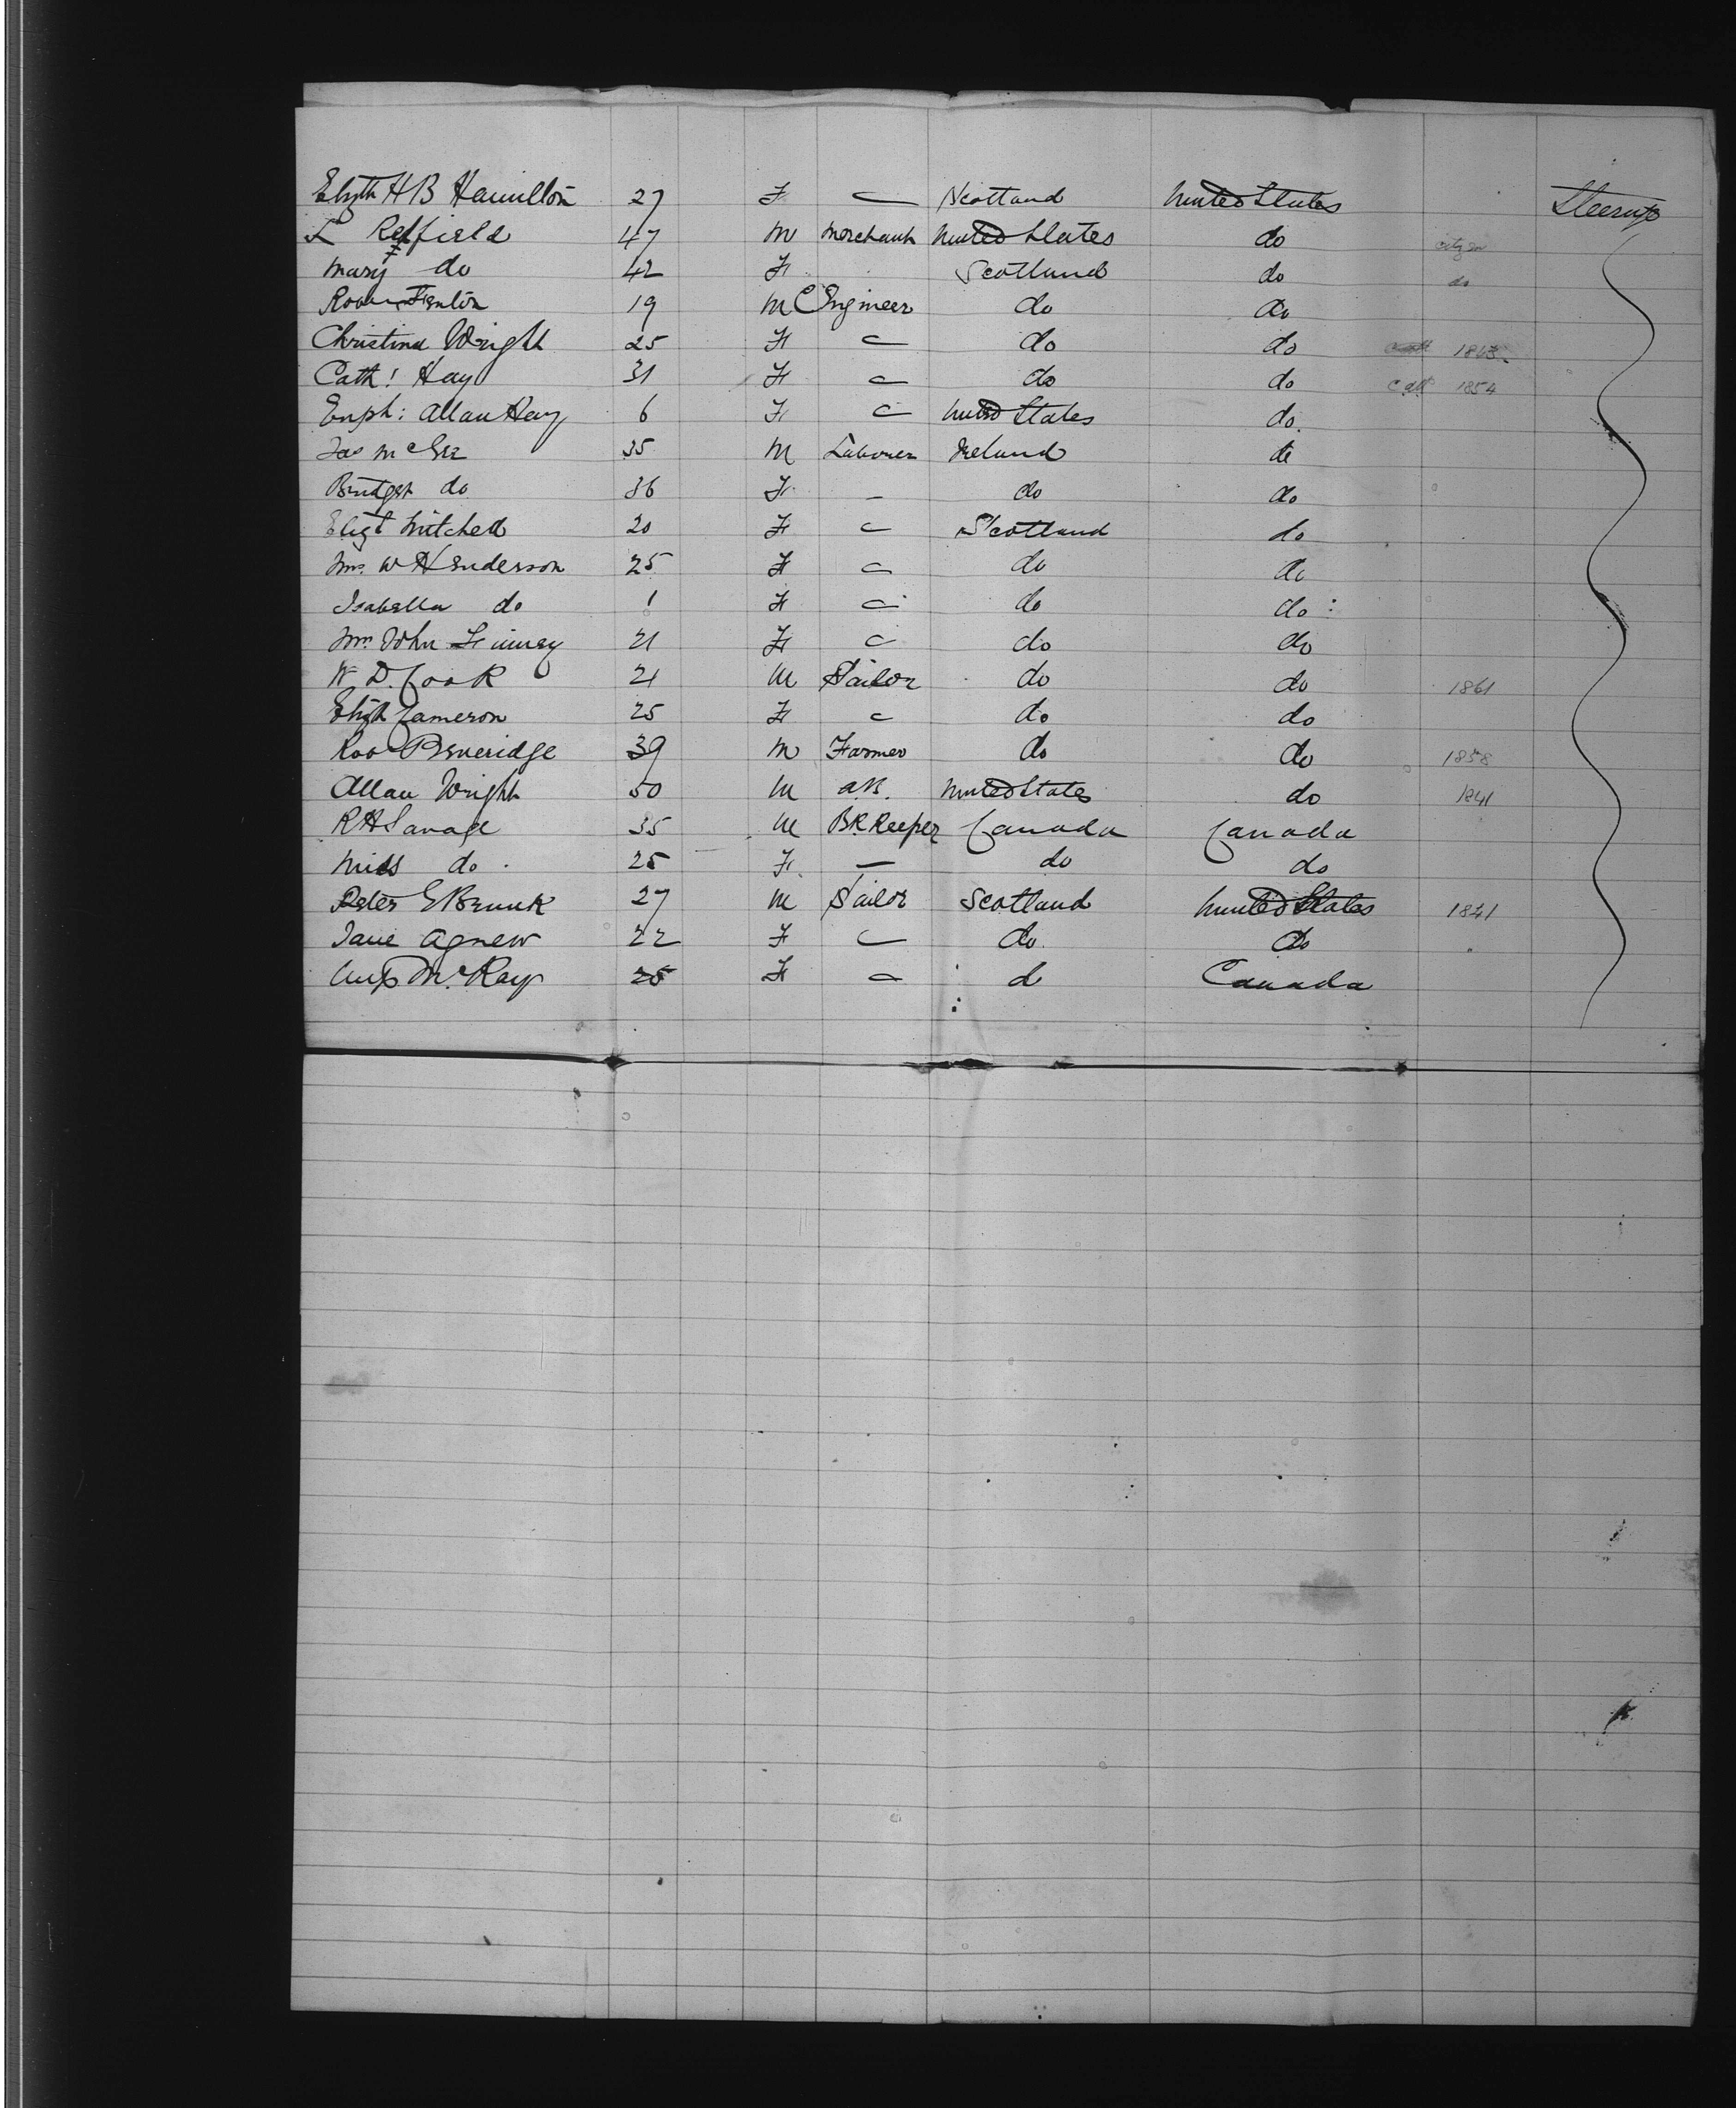 Elizth H B Hamilton 27 F — Scotland United States Steerage
L Redfield 47 M Merchant United States do citizen
Mary do 42 F Scotland do do
Robt Fenton 19 M C Engineer do do
Christina Wright 25 F — do do 1863
Cath! Hay 31 F — do do 1854
Euph: Allan Hay 6 F — United States do
Jas McGee 35 M Labourer Ireland do
Bridget do 36 F — do do
Elizt Mitchell 20 F — Scotland do
Mrs W Henderson 25 F — do do
Isabella do 1 F — do do
Mrs John Finney 21 F — do do
W. D. Cook 21 M Sailor do do 1861
Elizh Cameron 25 F — do do
Rob Beveridge 39 M Farmer do do 1858
Allan Wright 50 M United States do 1841
R H Savage 35 M BK Keeper Canada Canada
Miss do 25 F — do do
Peter 27 M Sailor Scotland United States 1841
Jane Agnew 22 F — do do
McKay 25 F — d Canada